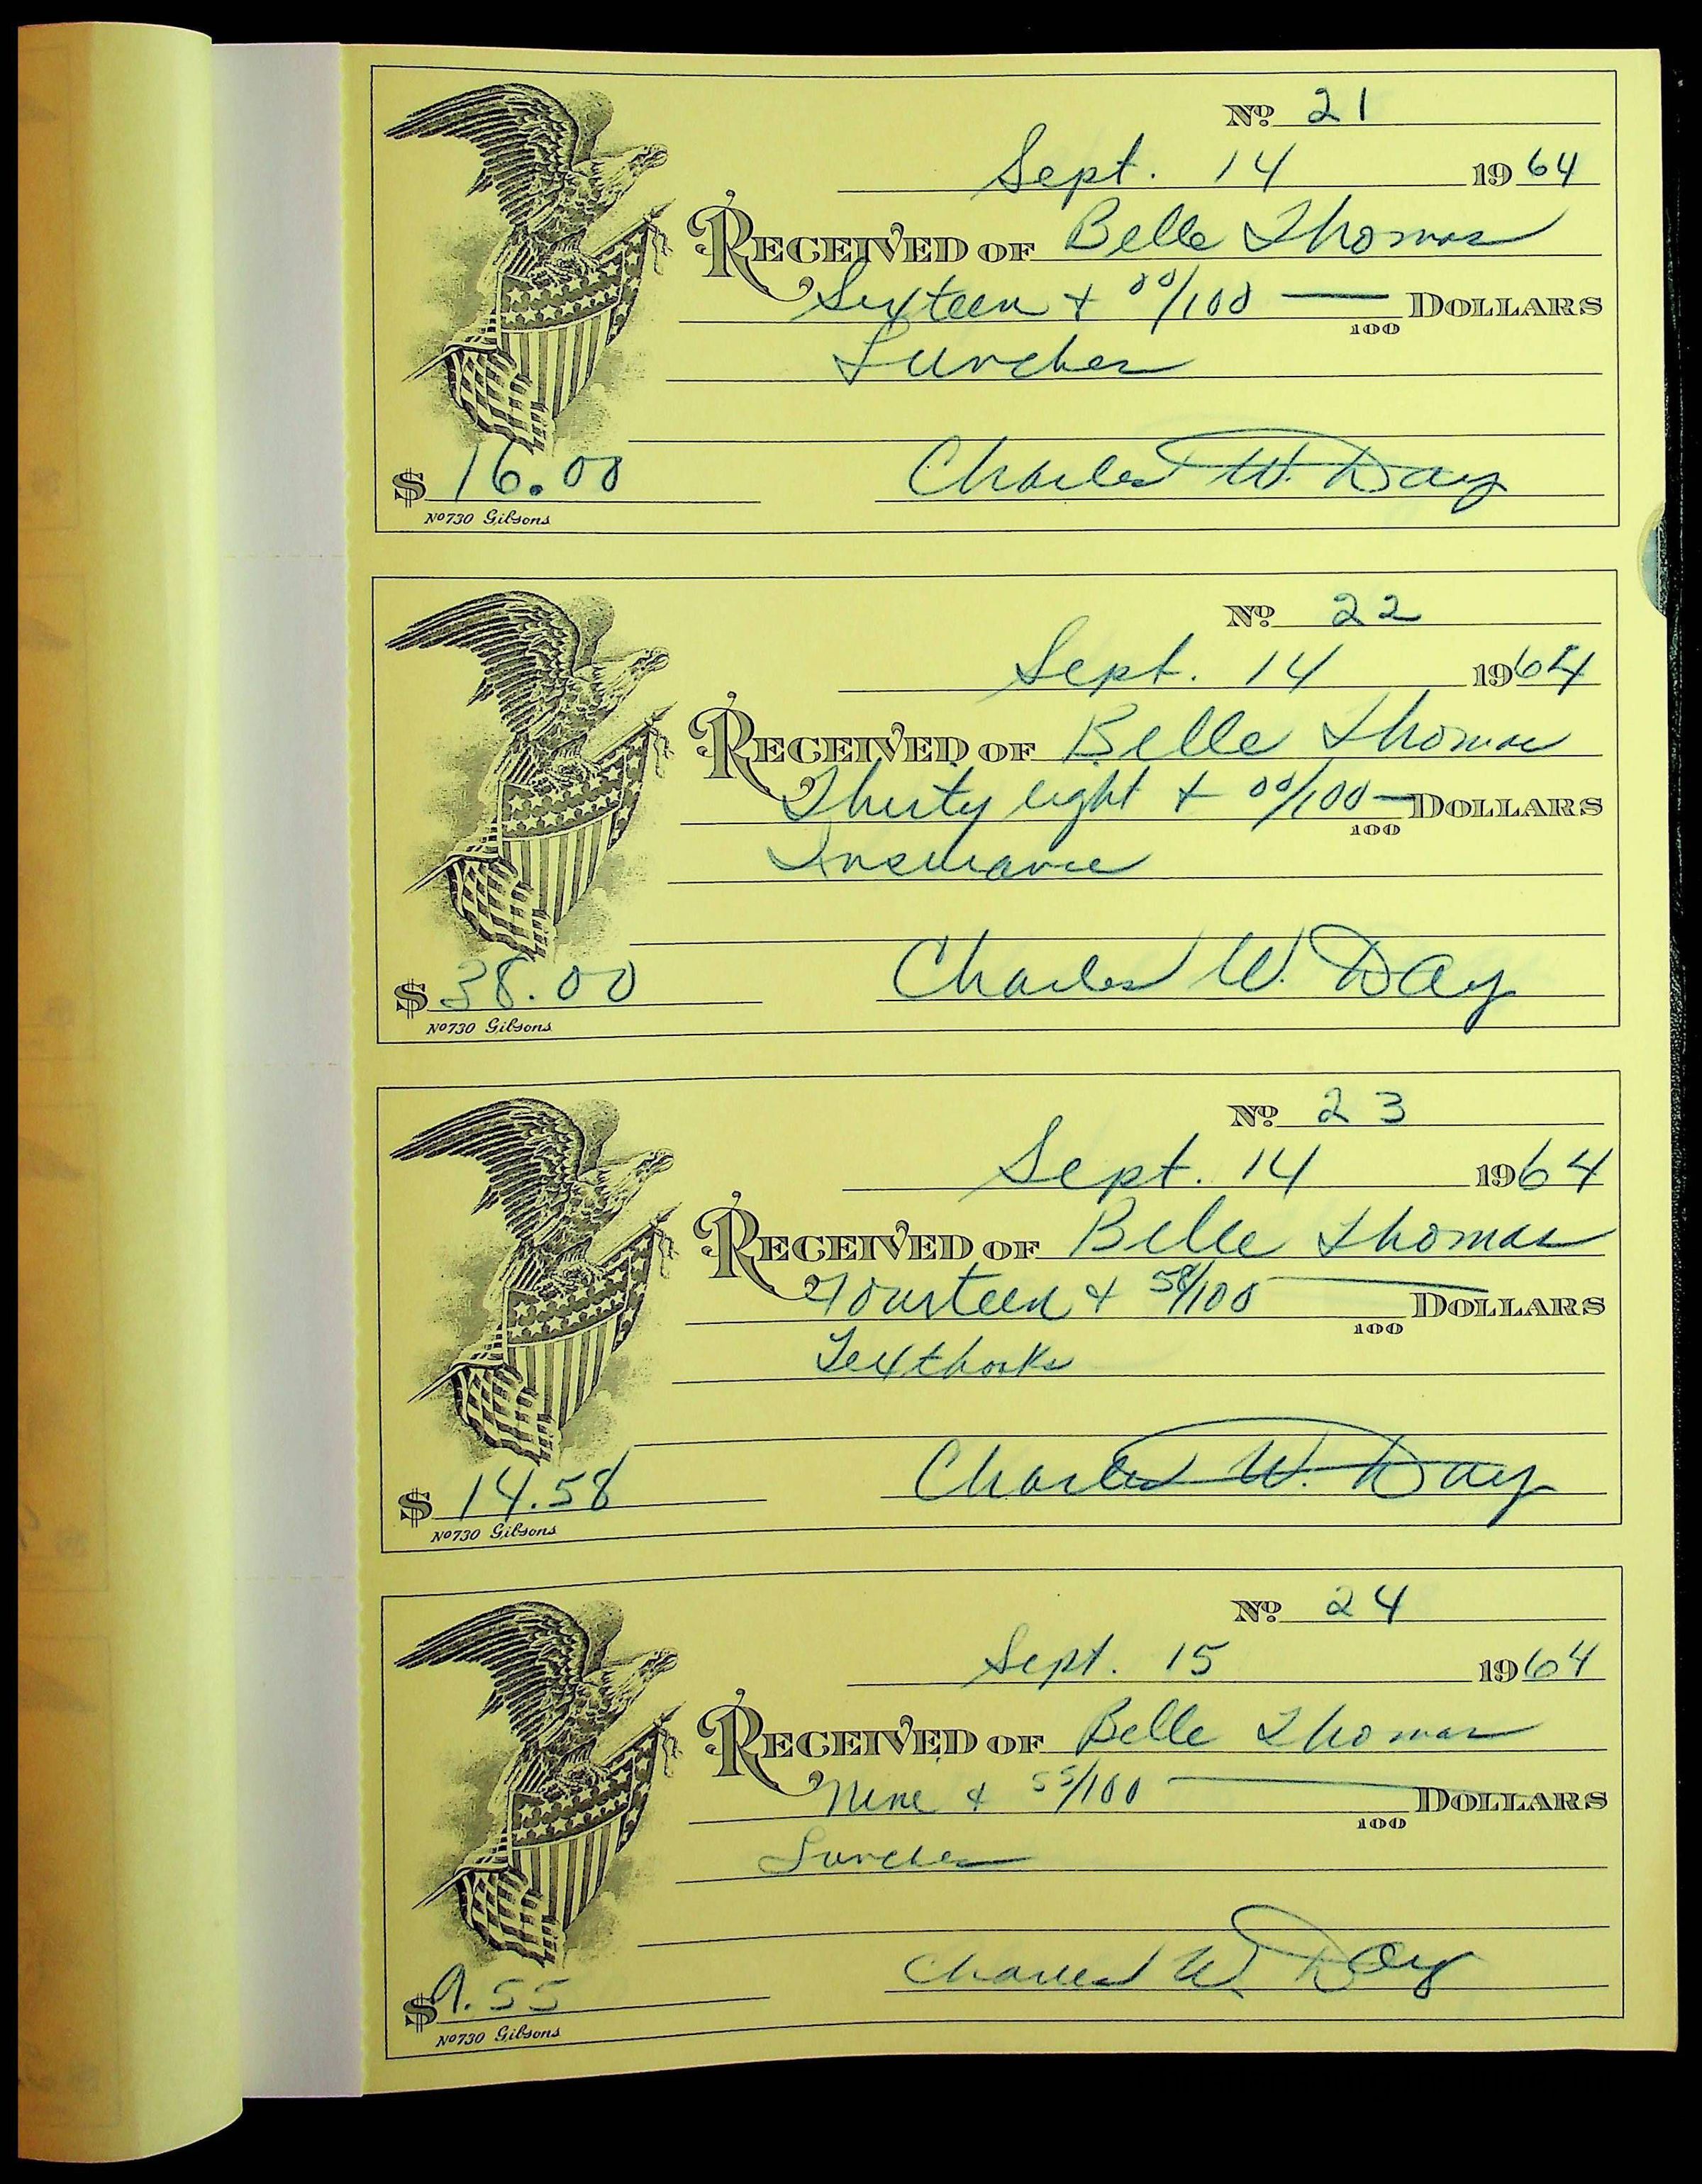 Nº 21
Sept. 14 1964
RECEIVED OF Belle Thomas
Sixteen + 00/100 — DOLLARS
100
Lunches
Charles W. Day
$ 16.00
Nº 730 Gibsons
Nº 22
Sept. 14 1964
RECEIVED OF Belle Thomas
Thirty eight + 00/100 — DOLLARS
100
Insurance
Charles W. Day
$ 38.00
Nº 730 Gibsons
Nº 23
Sept. 14 1964
RECEIVED OF Belle Thomas
Fourteen + 58/100 — DOLLARS
100
Textbooks
Charles W. Day
$ 14.58
Nº 730 Gibsons
Nº 24
Sept. 15 1964
RECEIVED OF Belle Thomas
Nine + 55/100 — DOLLARS
100
Lunches
Charles W. Day
$ 9.55
Nº 730 Gibsons